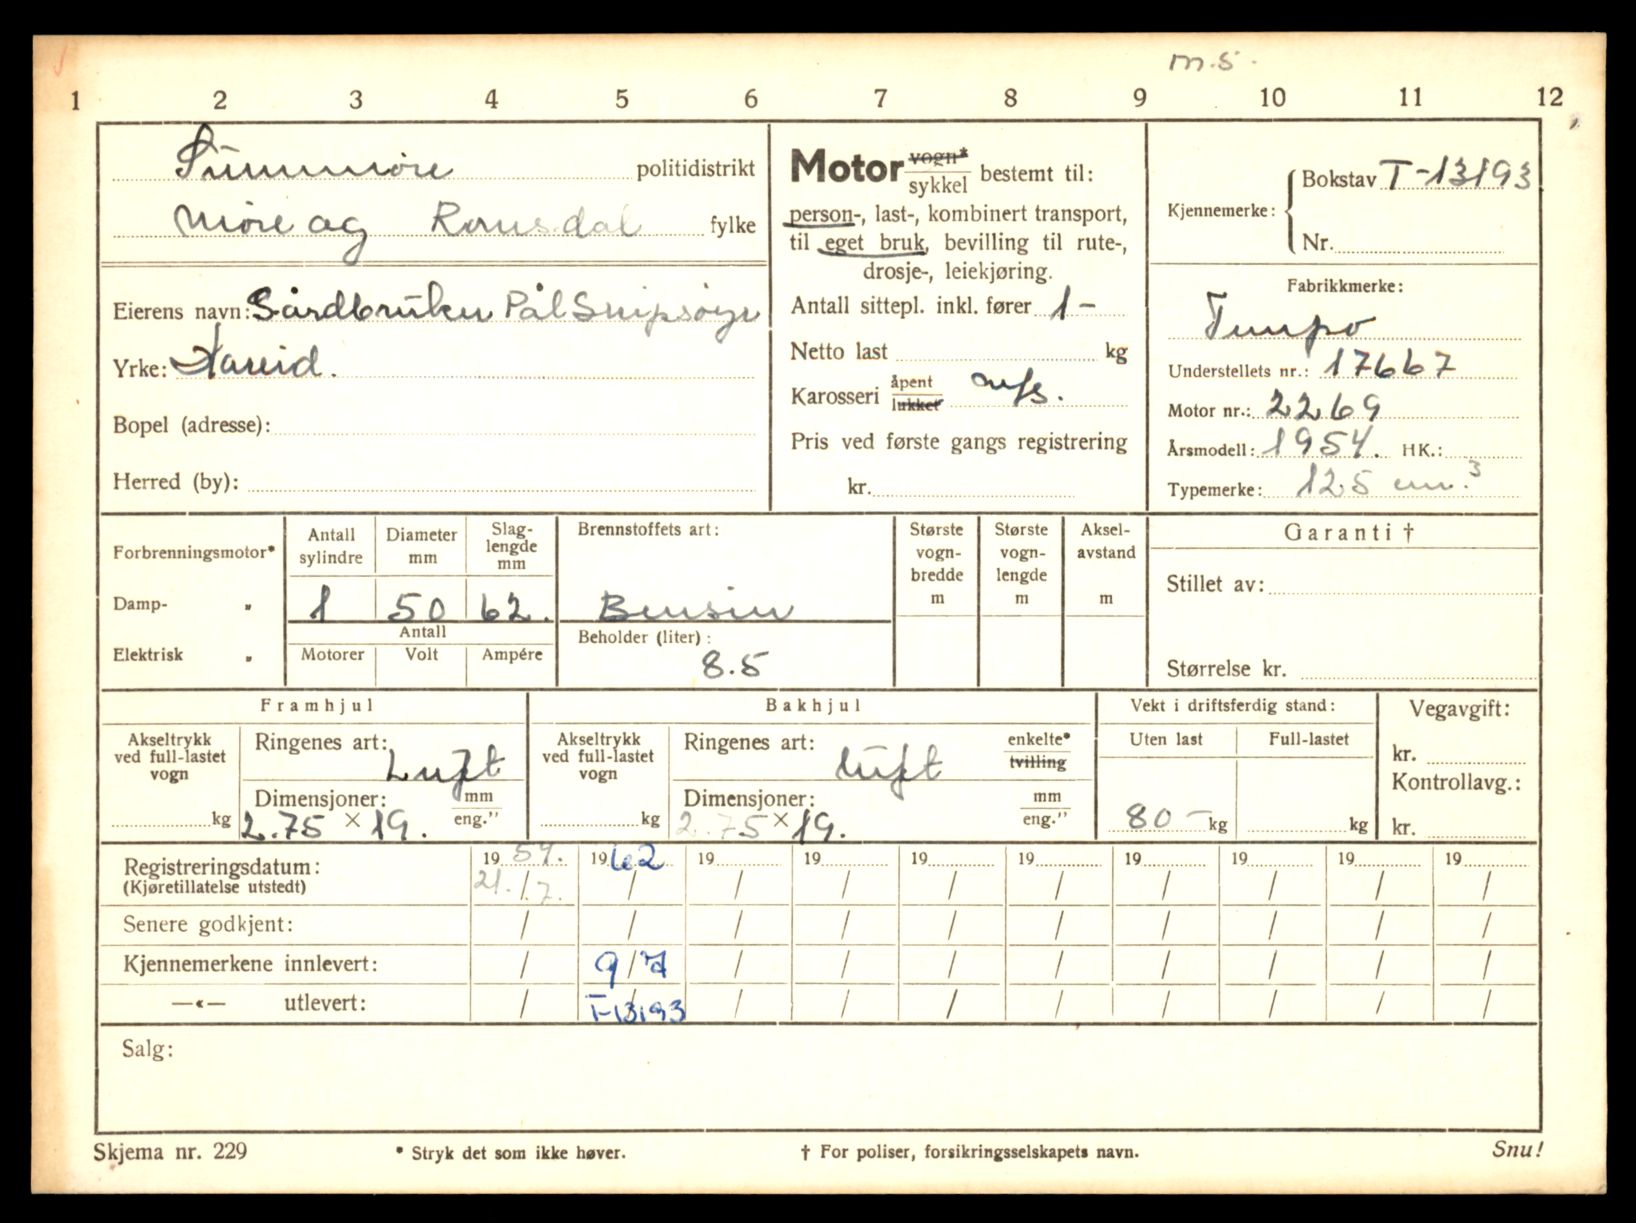 m.s.
1 2 3 4 5 6 7 8 9 10 11 12
Sunnmøre politidistrikt
Møre og Romsdal fylke
Eierens navn: Gårdbruker Pål Snipsøyr
Yrke: Hareid.
Bopel (adresse):
Herred (by):
Motor vogn* sykkel bestemt til:
person-, last-, kombinert transport,
til eget bruk, bevilling til rute-,
drosje-, leiekjøring.
Antall sittepl. inkl. fører 1-
Netto last kg
Karosseri åpent lukket mfs.
Pris ved første gangs registrering
kr.
Kjennemerke: Bokstav T-13193
Nr.
Fabrikkmerke:
Tempo
Understellets nr.: 17667
Motor nr.: 2269
Årsmodell: 1954. HK.:
Typemerke: 125 cm.³
Forbrenningsmotor*
Damp- „
Elektrisk „
Antall sylindre Diameter mm Slaglengde mm
1 50 62.
Antall
Motorer Volt Ampére
Brennstoffets art:
Bensin
Beholder (liter):
8.5
Største vogn-bredde m
Største vogn-lengde m
Aksel-avstand m
Garanti †
Stillet av:
Størrelse kr.
Framhjul
Akseltrykk ved full-lastet vogn kg
Ringenes art: Luft
Dimensjoner: mm eng.”
2.75 × 19.
Bakhjul
Akseltrykk ved full-lastet vogn kg
Ringenes art: luft enkelte* tvilling
Dimensjoner: mm eng.”
2.75 × 19.
Vekt i driftsferdig stand:
Uten last Full-lastet
80- kg kg
Vegavgift:
kr.
Kontrollavg.:
kr.
Registreringsdatum: 19 54. 19 62 19 19 19 19 19 19 19 19
(Kjøretillatelse utstedt) 21./7. / / / / / / / / /
Senere godkjent: / / / / / / / / / /
Kjennemerkene innlevert: / 9/7 / / / / / / / /
—«— utlevert: / T-13193 / / / / / / / /
Salg:
Skjema nr. 229 * Stryk det som ikke høver. † For poliser, forsikringsselskapets navn. Snu!